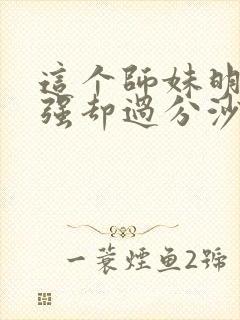 這个師妹明
强却過分沙
一蓑煙鱼2號